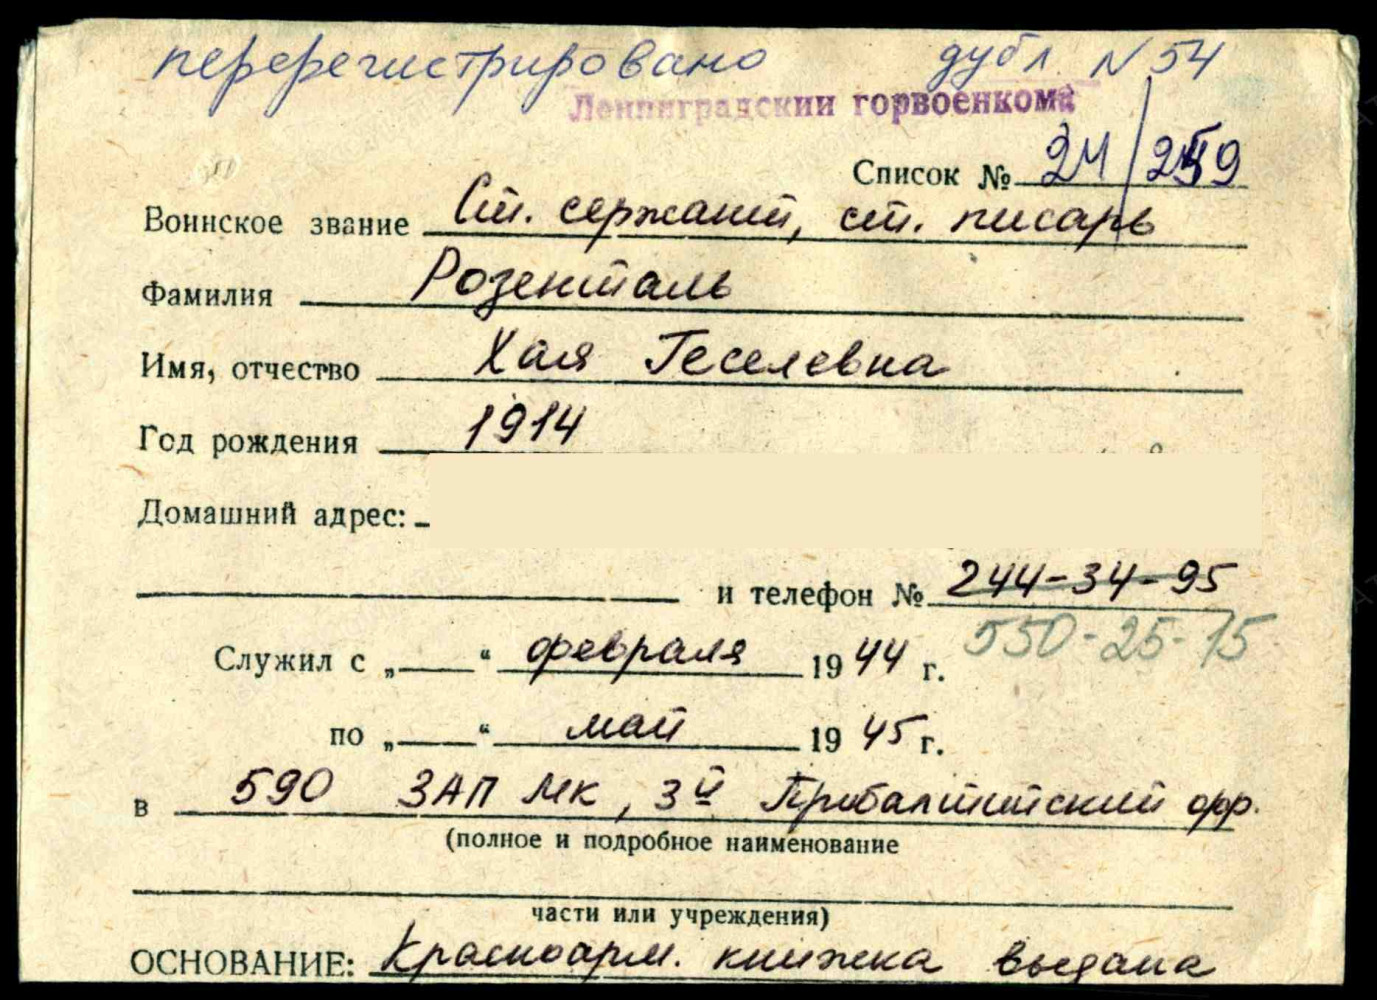 перерегистрировано дубл. N 54
Ленинградский горвоенкома
Список № 24/259
Воинское звание Ст. сержант, ст. писарь
Фамилия Розенталь
Имя, отчество Хая Геселевна
Год рождения 1914
Домашний адрес:
и телефон № 244-34-95
550-25-15
Служил с „ “ февраля 1944 г.
по „ “ май 1945 г.
в 590 ЗАП МК, 3й Прибалтийский фр.
(полное и подробное наименование
части или учреждения)
ОСНОВАНИЕ: Красноарм. книжка выдана